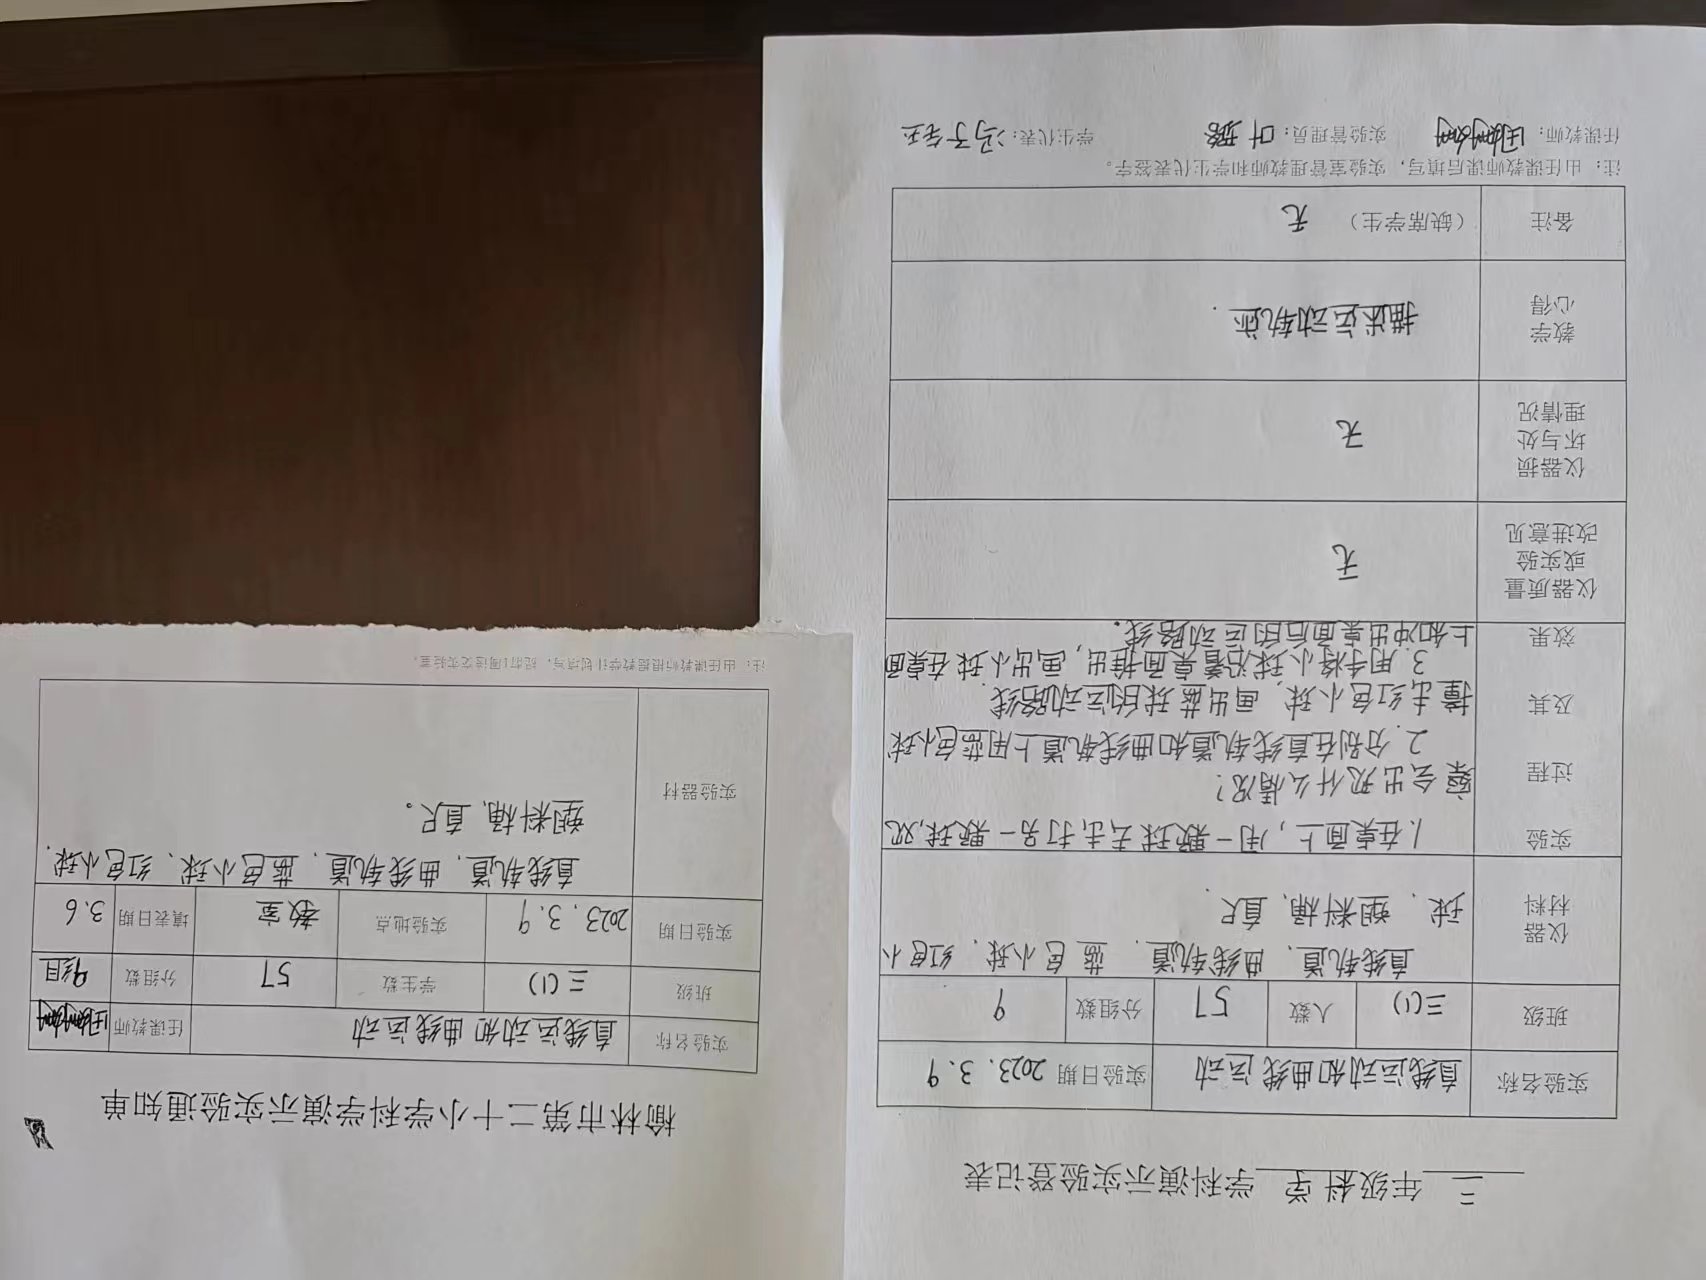 三 年级 科学 学科演示实验登记表
实验名称 直线运动和曲线运动 实验日期 2023.3.9
班级 三(1) 人数 57 分组数 9
仪器材料 直线轨道、曲线轨道、蓝色小球、红色小
球、塑料桶、直尺.
实验过程及其效果 1.在桌面上,用一颗球去击打另一颗球,观
察会出现什么情况?
2.分别在直线轨道和曲线轨道上用蓝色小球
撞击红色小球,画出蓝球的运动路线.
3.用手将小球沿着桌面推出,画出小球在桌面
上和冲出桌面后的运动路线.
仪器质量或实验改进意见 无
仪器损坏与处理情况 无
教学心得 描述运动轨迹.
备注 (缺席学生) 无
注:由任课教师课后填写,实验室管理教师和学生代表签字。
任课教师: 实验管理员:叶璐 学生代表:冯子
榆林市第二十小学科学演示实验通知单
实验名称 直线运动和曲线运动 任课教师
班级 三(1) 学生数 57 分组数 9组
实验日期 2023.3.9 实验地点 教室 填表日期 3.6
实验器材 直线轨道、曲线轨道、蓝色小球、红色小球、
塑料桶,直尺。
注:由任课教师根据教学计划填写,提前1周送交实验室。